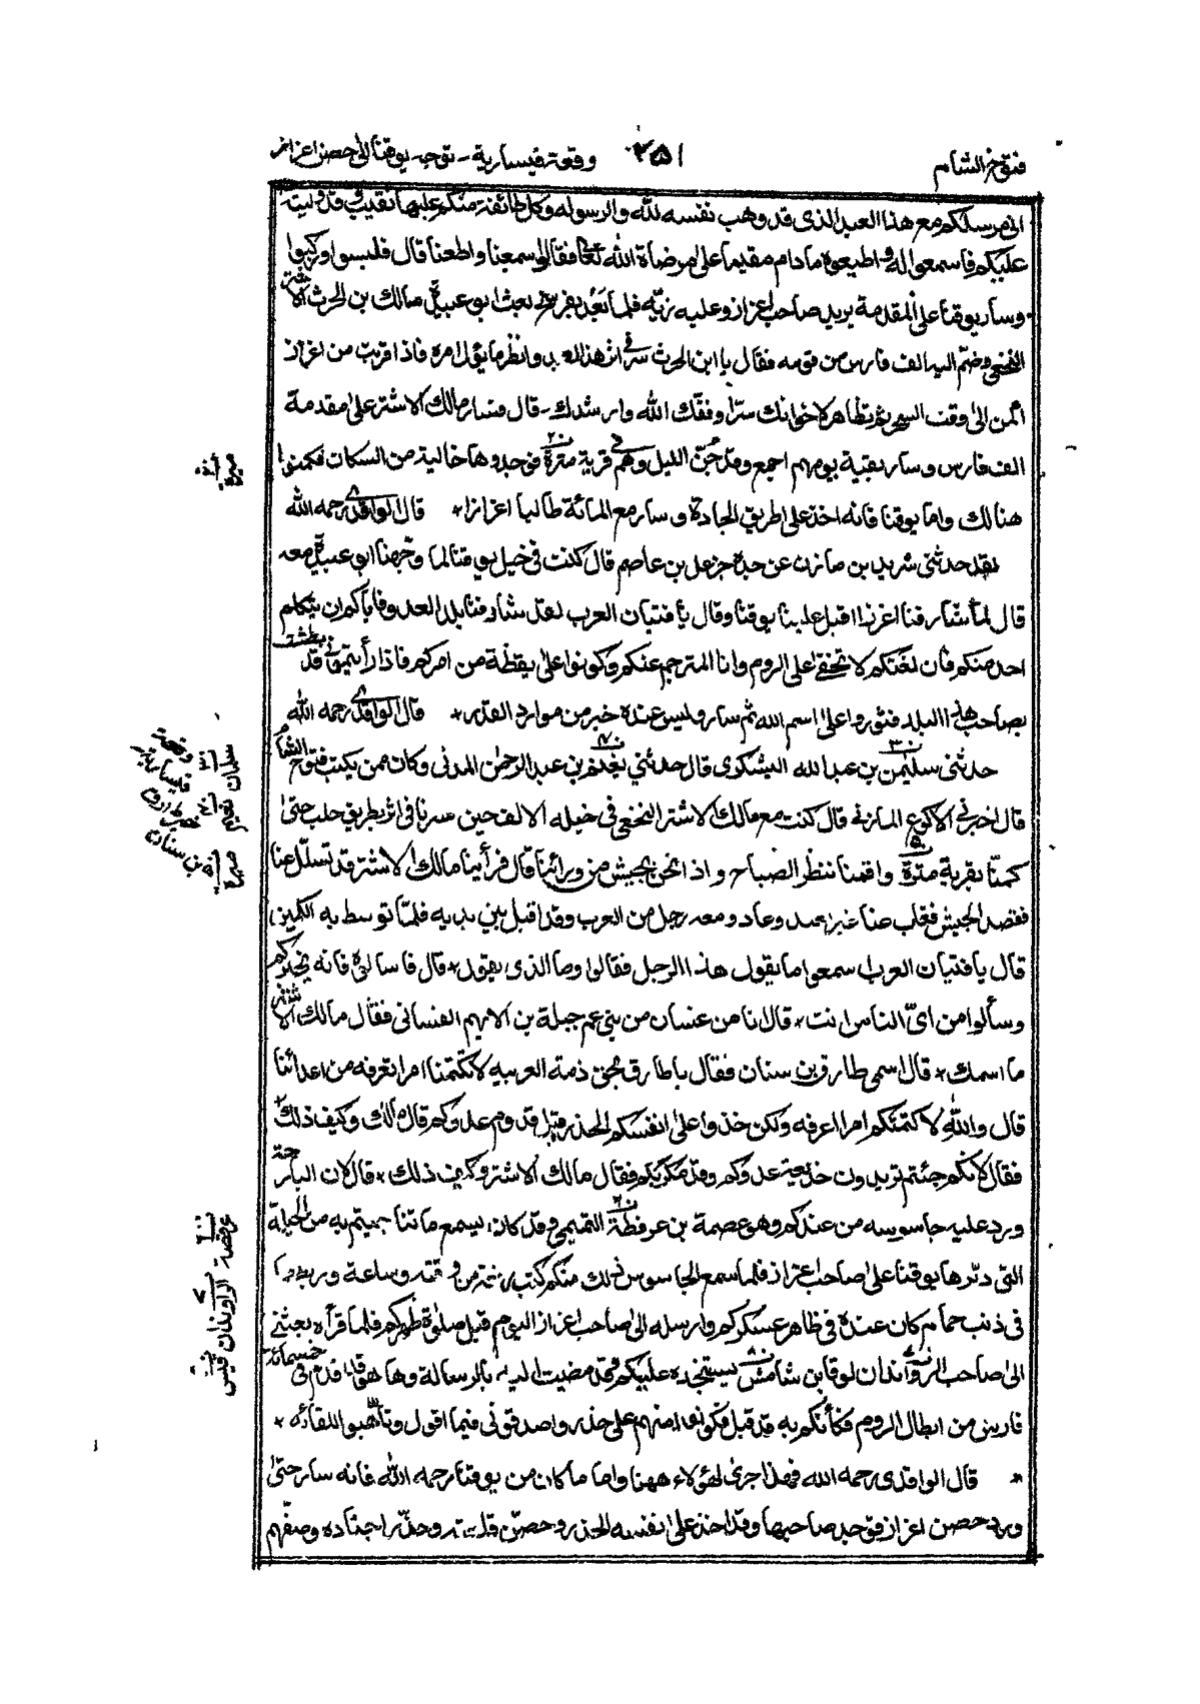 فتوح الشام
٣٥١
وقعة قيسارية - توجه يوقنا الى حصن اعزاز
انى مرسلكم مع هذا العبد الذى قد وهب نفسه لله والرسوله وكل طائفة منكم عليها نقيب وقد وليته
عليكم فاسمعوا له واطيعوه مادام مقيما على مرضاة الله تعالى فقالوا سمعنا واطعنا قال فلبسوا وركبوا
وسار يوقنا على المقدمة يريد صاحب اعزاز وعليه زيّه فلما بَعُد بفرسخ بعث ابو عبيدة مالك بن الحرث الاشتر
النخعى وضمّ اليه الف فارس من قومه فقال يا ابن الحرث سر فى اثر هذا العبد وانظر ما يؤل امره فاذا قربت من اعزاز
اكمن الى وقت السحر ثم تظاهر لاخوانك سرّا وفقك الله وارشدك - قال فسار مالك الاشتر على مقدمة
الف فارس وسار بقية يومهم اجمع وقد جُنّ الليل وهم فى قرية مترة فوجدوها خالية من السكان فكمنوا
هنالك واما يوقنا فانه اخذ على طريق الجادة وسار مع المائة طالبا اعزازا * قال الواقدى رحمه الله
لقد حدثنى شريد بن مازن عن جده جزعل بن عاصم قال كنت فى خيل يوقنا لما وجّهنا ابو عبيدة معه
قال لما شارفنا اعزازا اقبل علينا يوقنا وقال يا فتيان العرب لقد شارفنا بلد العدو فاياكم ان يتكلم
احد منكم فان لغتكم لا تخفى على الروم وانا المترجم عنكم وكونوا على يقظة من امركم فاذا رأيتمونى قد بطشت
بصاحب هذا البلد فثوروا على اسم الله ثم سار وليس عنده خبر من موارد القدر * قال الواقدى رحمه الله
حدثنى سليمن بن عبدالله اليشكرى قال حدثنى بن عبدالرحمن المدنى وكان ممن يكتب فتوح الشام
قال اخبرنى الاكوع المازنى قال كنت مع مالك الاشتر النخعى فى خيله الالف حين سرنا فى اثر بطريق حلب حتى
كمنّا بقرية مترة واقمنا ننظر الصباح واذا نحن بجيش من ورائنا قال فرأينا مالك الاشتر قد تسلّل عنا
فقصد الجيش فغاب عنا غير بعيد وعاد ومعه رجل من العرب وقد اقبل بين يديه فلمّا توسط به الكمين
قال يا فتيان العرب اسمعوا ما يقول هذا الرجل فقالوا وما الذى يقول * قال فاسالوه فانه يخبركم
وسألوا من اىّ الناس انت * قال انا من غسان من بنى عم جبلة بن الايهم الغسانى فقال مالك الاشتر
ما اسمك * قال اسمى طارق بن سنان فقال يا طارق بحق ذمة العربيه لا تكتمنا امرا تعرفه من اعدائنا
قال والله لا كتمتكم امرا اعرفه ولكن خذوا على انفسكم الحذر قبل قدوم عدوكم قال مالك وكيف ذلك
فقال لانكم جئتم تريدون خديعة عدوكم وقد مكر بكم فقال مالك الاشتر وكيف ذلك * قال لان البارحة
ورد عليه جاسوسه من عندكم وهو عصمة بن عرفطة التميمى وقد كان يسمع ما تناجيتم به من الحيلة
التى دبّرها يوقنا على صاحب اعزاز فلما سمع الجاسوس ذلك منكم كتب من وقته وساعة وربطها
فى ذنب حمام كان عنده فى ظاهر عسكركم وارسله الى صاحب اعزاز اليوم قبل صلوة ظهركم فلما قرأه بعثنى
الى صاحب الراوندان لوقا بن شامش يستنجده عليكم فقد مضيت اليه بالرسالة وها هو قد قدم فى خمسمائة
فارس من ابطال الروم فكأنكم به قد قبل فكونوا منهم على حذر واصدقونى فيما اقول وتأهبوا للقائه *
* قال الواقدى رحمه الله فهذا جرى لهؤلاء ههنا واما ما كان من يوقنا رحمه الله فانه سار حتى
ورد حصن اعزاز فوجد صاحبها وقد اخذ على نفسه الحذر وحصّن قلعته وحذّر اجناده وصفّهم